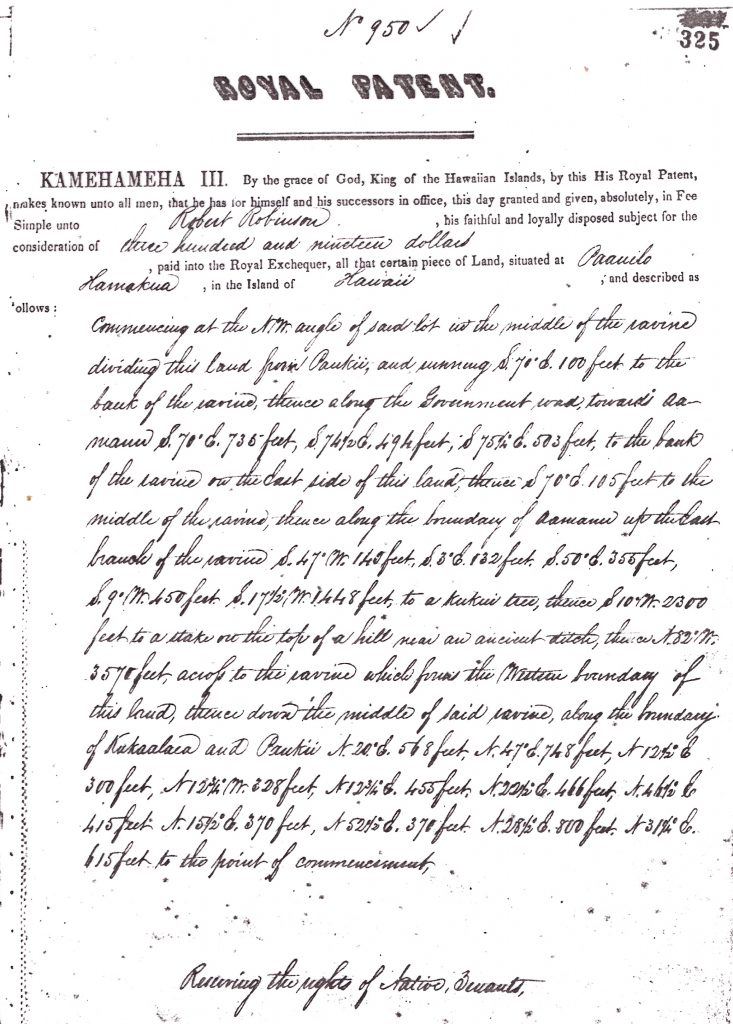 No 950
325
ROYAL PATENT.
KAMEHAMEHA III. By the grace of God, King of the Hawaiian Islands, by this His Royal Patent,
makes known unto all men, that he has for himself and his successors in office, this day granted and given, absolutely, in Fee
Simple unto Robert Robinson, his faithful and loyally disposed subject for the
consideration of three hundred and nineteen dollars
, paid into the Royal Exchequer, all that certain piece of Land, situated at Paauilo
Hamakua, in the Island of Hawaii, and described as
follows:
Commencing at the N.W. angle of said lot in the middle of the ravine
dividing this land from Paukii, and running S. 70° E. 100 feet to the
bank of the ravine, thence along the Government road, towards Aa-
manu S. 70° E. 735 feet, S 74½ E. 494 feet, S 75¼ E. 503 feet, to the bank
of the ravine on the East side of this land, thence S 70° E. 105 feet to the
middle of the ravine, thence along the boundary of Aamanu up the East
branch of the ravine S. 47° W. 149 feet, S. 3° E. 132 feet. S. 50° E. 355 feet,
S. 9° W. 450 feet S. 17½ W. 1448 feet, to a kukui tree, thence S 10° W. 2300
feet to a stake on the top of a hill near an ancient ditch, thence N. 82° W.
3570 feet, across to the ravine which forms the Western boundary of
this land, thence down the middle of said ravine, along the boundary
of Kukaalaea and Paukii N. 20° E. 568 feet, N. 47° E. 748 feet, N 12½ E
300 feet, N 12¾ W. 328 feet, N 12¾ E. 455 feet, N. 22½ E. 466 feet, N. 46½ E
415 feet N. 15½ E. 370 feet, N 52½ E. 370 feet N. 28½ E. 800 feet N 31¾ E.
615 feet to the point of commencement,
Reserving the rights of Native Tenants,